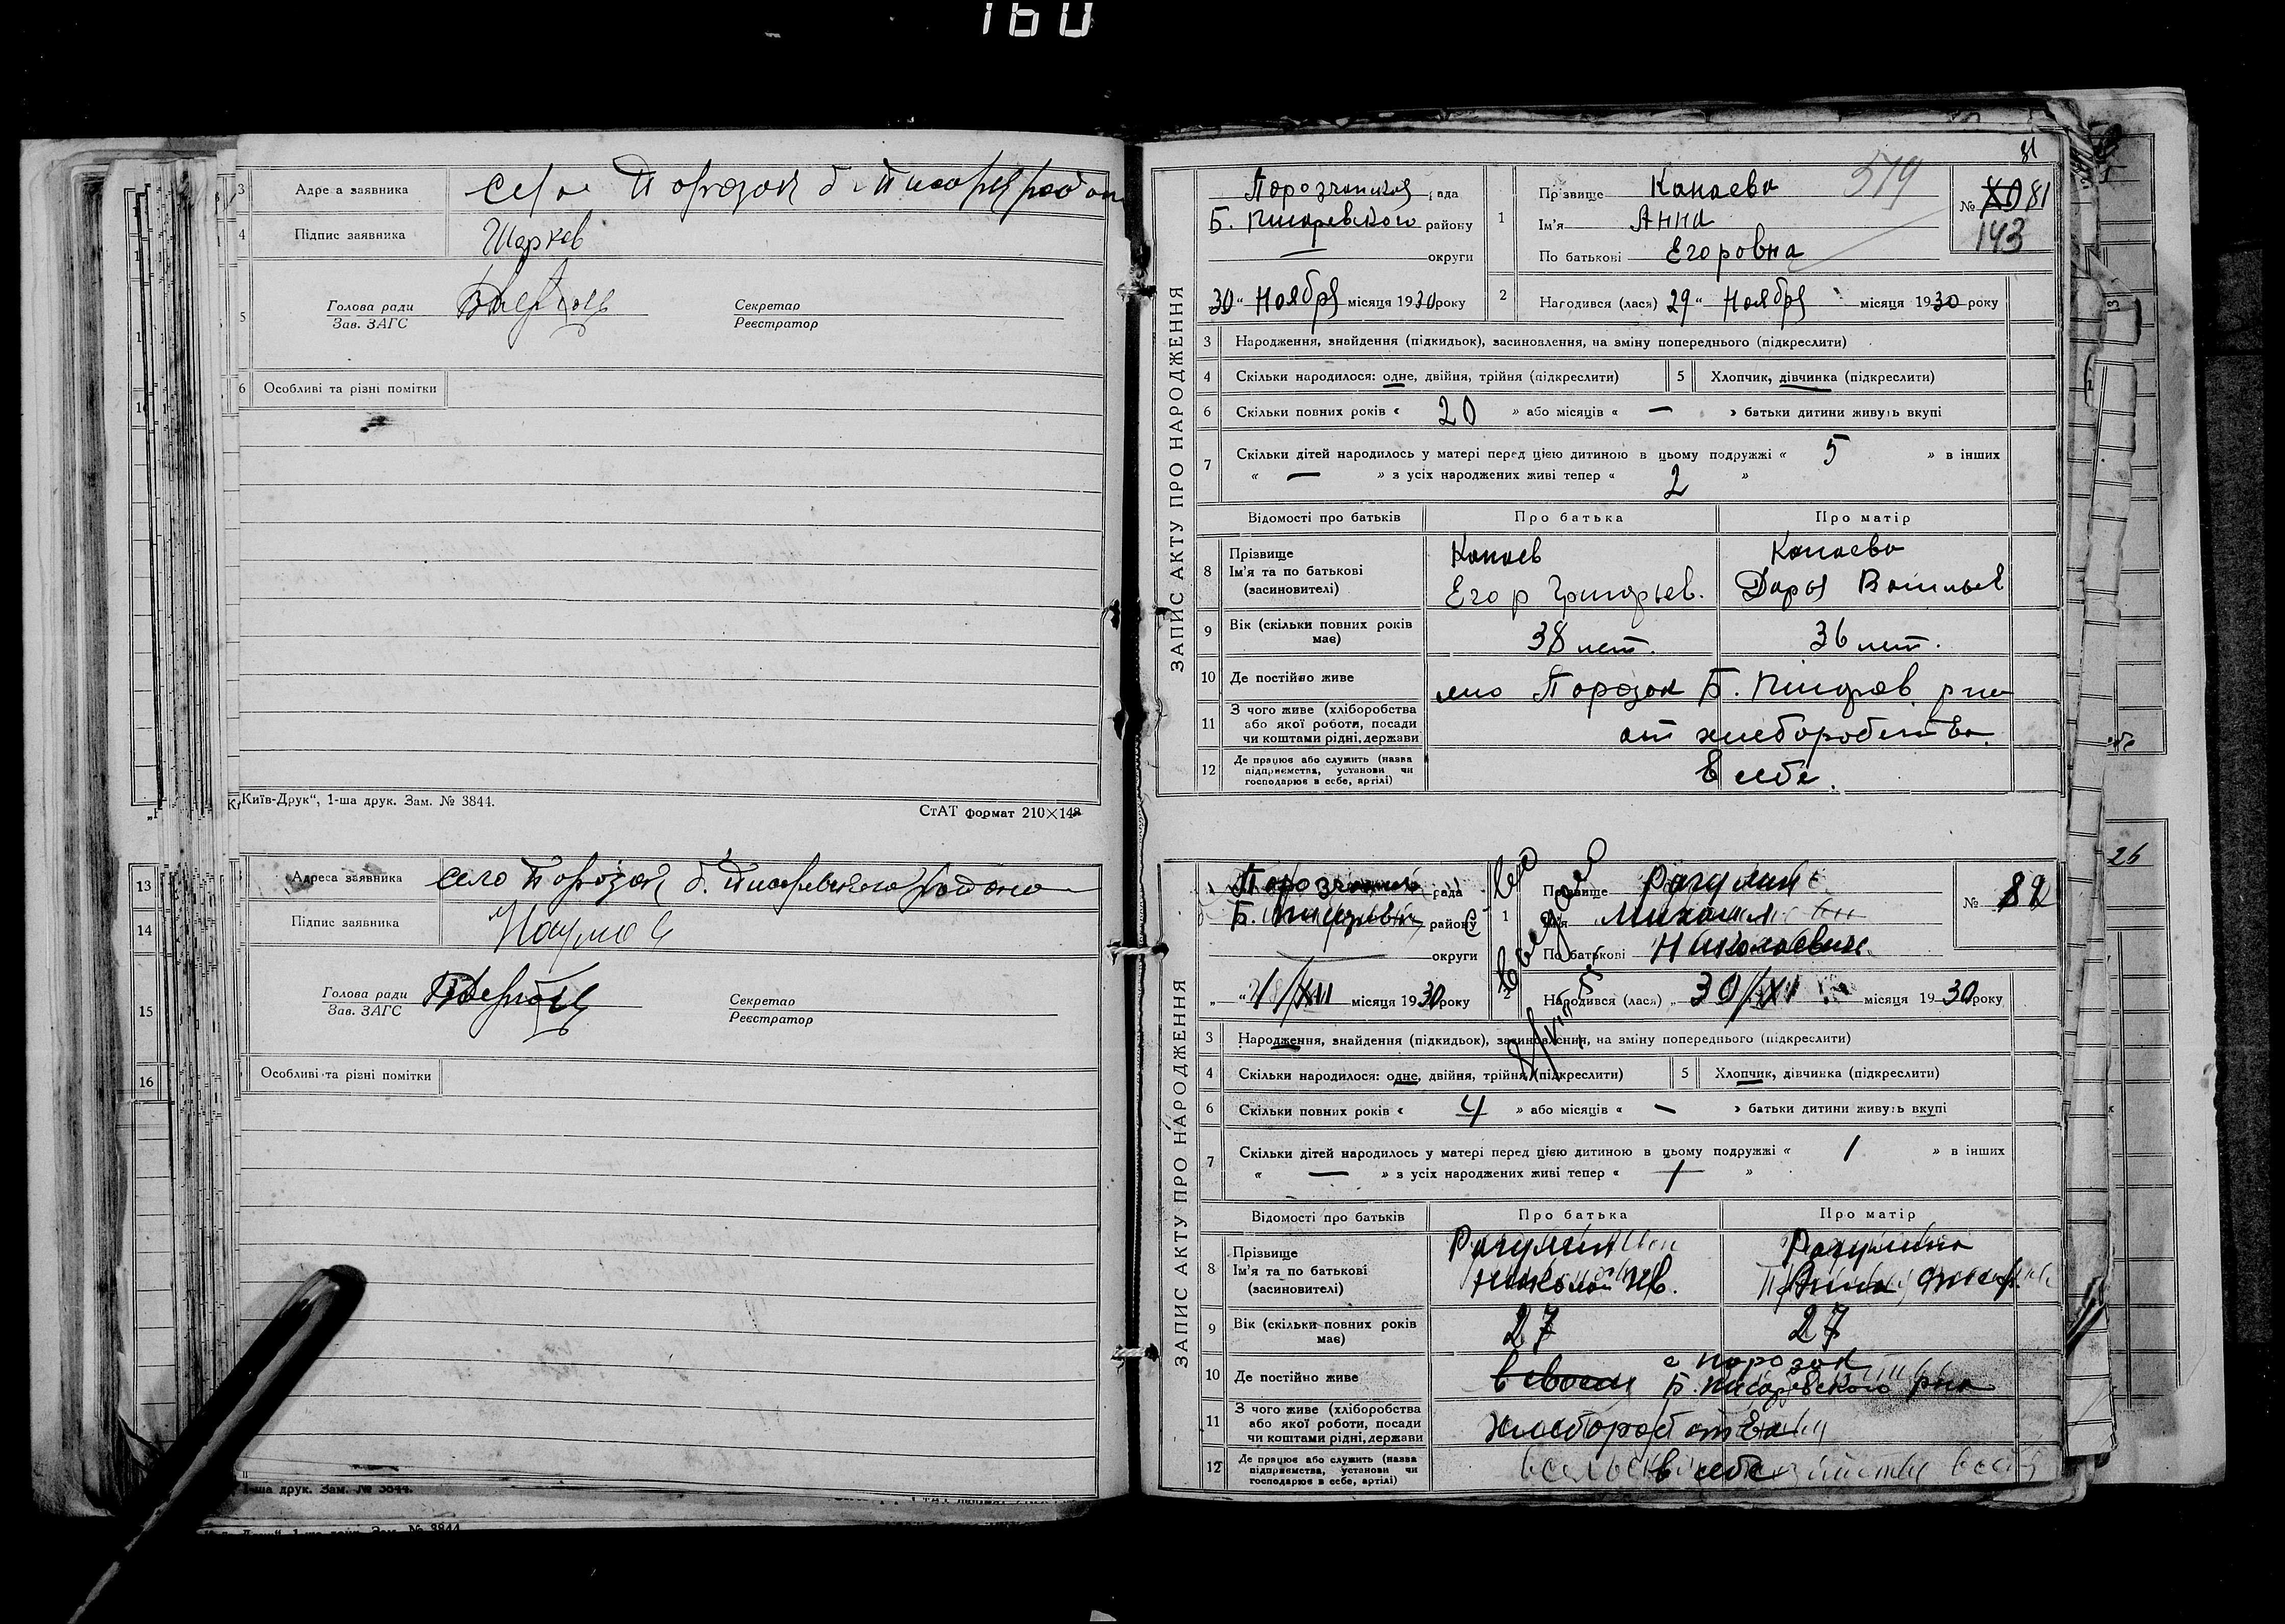 160
3 Адреса заявника село Порозок б. Писарев района
4 Підпис заявника Шарков
5 Голова ради
Зав. ЗАГС
Секретар
Реєстратор
6 Особливі та різні помітки
Київ-Друк“, 1-ша друк. Зам. № 3844.
СтАТ формат 210×148
13 Адреса заявника село Порозок б. Писаревского района
14 Підпис заявника Наумов
15 Голова ради
Зав. ЗАГС
Секретар
Реєстратор
16 Особливі та різні помітки
1-ша друк. Зам. № 3844.
81
ЗАПИС АКТУ ПРО НАРОДЖЕННЯ
Порозчанская рада
Б. Писаревского району
— округи
30 „ Ноября місяця 1930 року
1 Прізвище Капаева 579
Ім'я Анна
По батькові Егоровна
№ 81
143
2 Народився (лася) 29 „ Ноября місяця 1930 року
3 Народження, знайдення (підкидьок), засиновлення, на зміну попереднього (підкреслити)
4 Скільки народилося: одне, двійня, трійня (підкреслити) 5 Хлопчик, дівчинка (підкреслити)
6 Скільки повних років « 20 » або місяців « — » батьки дитини живуть вкупі
7 Скільки дітей народилось у матері перед цією дитиною в цьому подружжі « 5 » в інших
« — » з усіх народжених живі тепер « 2 »
Відомості про батьків Про батька Про матір
8 Прізвище Капаев Капаева
Ім'я та по батькові
(засиновителі) Егор Григорьев. Дарья Васильев
9 Вік (скільки повних років має) 38 лет. 36 лет.
10 Де постійно живе село Порозок Б. Писарев. р-на
11 З чого живе (хліборобства
або якої роботи, посади
чи коштами рідні, держави от хлеборобства.
12 Де працює або служить (назва
підприємства, установи чи
господарює в себе, артілі) в себе.
ЗАПИС АКТУ ПРО НАРОДЖЕННЯ
Порозчанский рада
Б. Писаревский району
округи
1/XII місяця 1930 року
1 Прізвище Рагулин
Ім'я Михаил
По батькові Николаевич
№ 82
2 Народився (лася) „ 30/XI місяця 1930 року
3 Народження, знайдення (підкидьок), засиновлення, на зміну попереднього (підкреслити)
4 Скільки народилося: одне, двійня, трійня (підкреслити) 5 Хлопчик, дівчинка (підкреслити)
6 Скільки повних років « 4 » або місяців « — » батьки дитини живуть вкупі
7 Скільки дітей народилось у матері перед цією дитиною в цьому подружжі « 1 » в інших
« — » з усіх народжених живі тепер « 1 »
Відомості про батьків Про батька Про матір
8 Прізвище Рагулин Рагулина
Ім'я та по батькові
(засиновителі) Николай Ив.
9 Вік (скільки повних років має) 27 27
10 Де постійно живе с Порозок
Б. Писаревского р-на
11 З чого живе (хліборобства
або якої роботи, посади
чи коштами рідні, держави хлеборобства
12 Де працює або служить (назва
підприємства, установи чи
господарює в себе, артілі) в себе
26